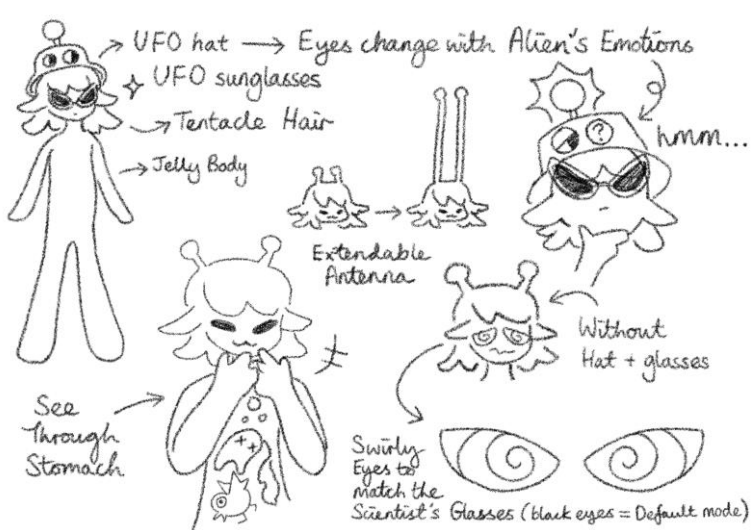 UFO hat → Eyes change with Alien's Emotions
UFO sunglasses
Tentacle Hair
Jelly Body
hmm...
?
Extendable
Antenna
Without
Hat + glasses
See
Through
Stomach
Swirly
Eyes to
match the
Scientist's Glasses (black eyes = Default mode)